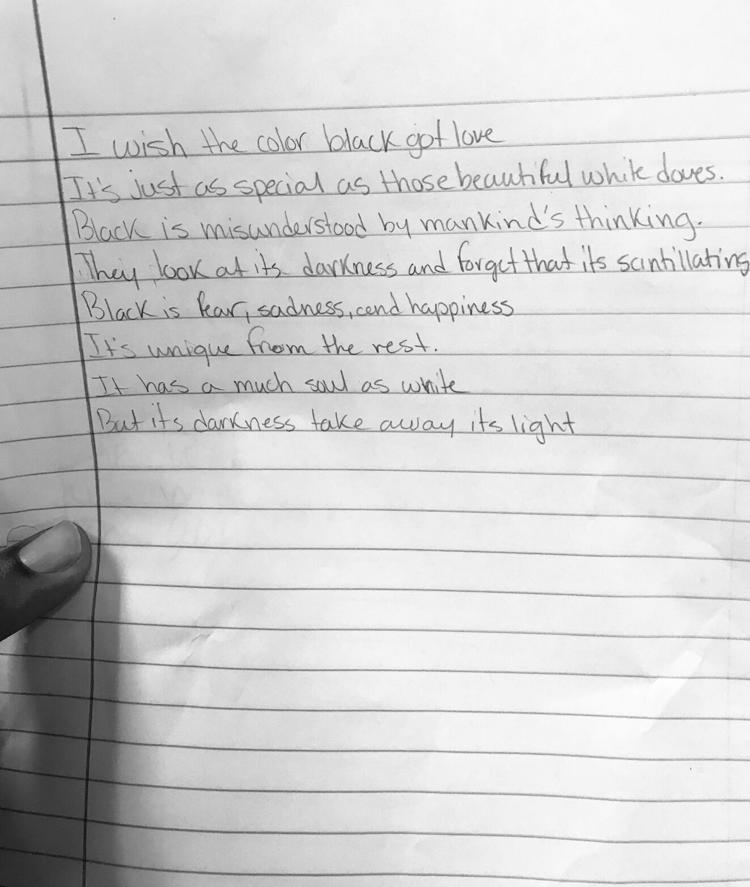 I wish the color black got love
It's just as special as those beautiful white doves.
Black is misunderstood by mankind's thinking.
They look at its darkness and forget that its scintillating
Black is fear, sadness, and happiness
It's unique from the rest.
It has a much soul as white
But its darkness take away its light